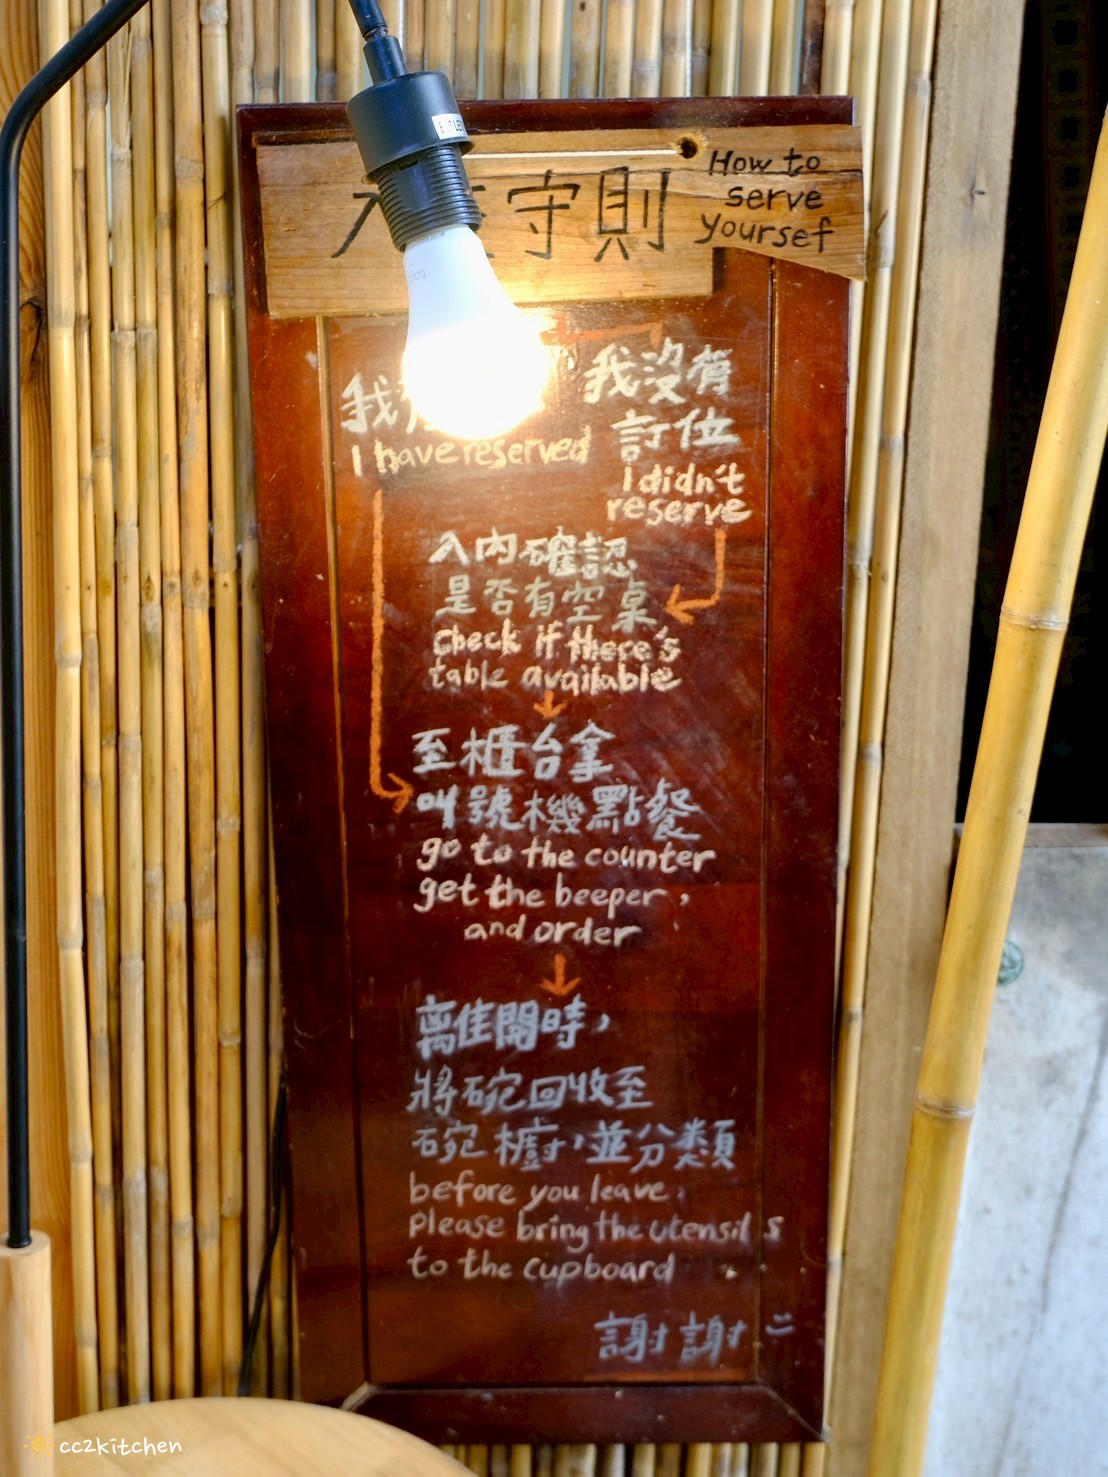 守則
How to
serve
yoursef
我
我沒有
訂位
I have reserved
I didn't
reserve
入內確認
是否有空桌
Check if there's
table available
至櫃台拿
叫號機點餐
go to the counter
get the beeper,
and order
離開時,
將碗回收至
碗櫥,並分類
before you leave,
please bring the utensils
to the cupboard
謝謝
cc2kitchen